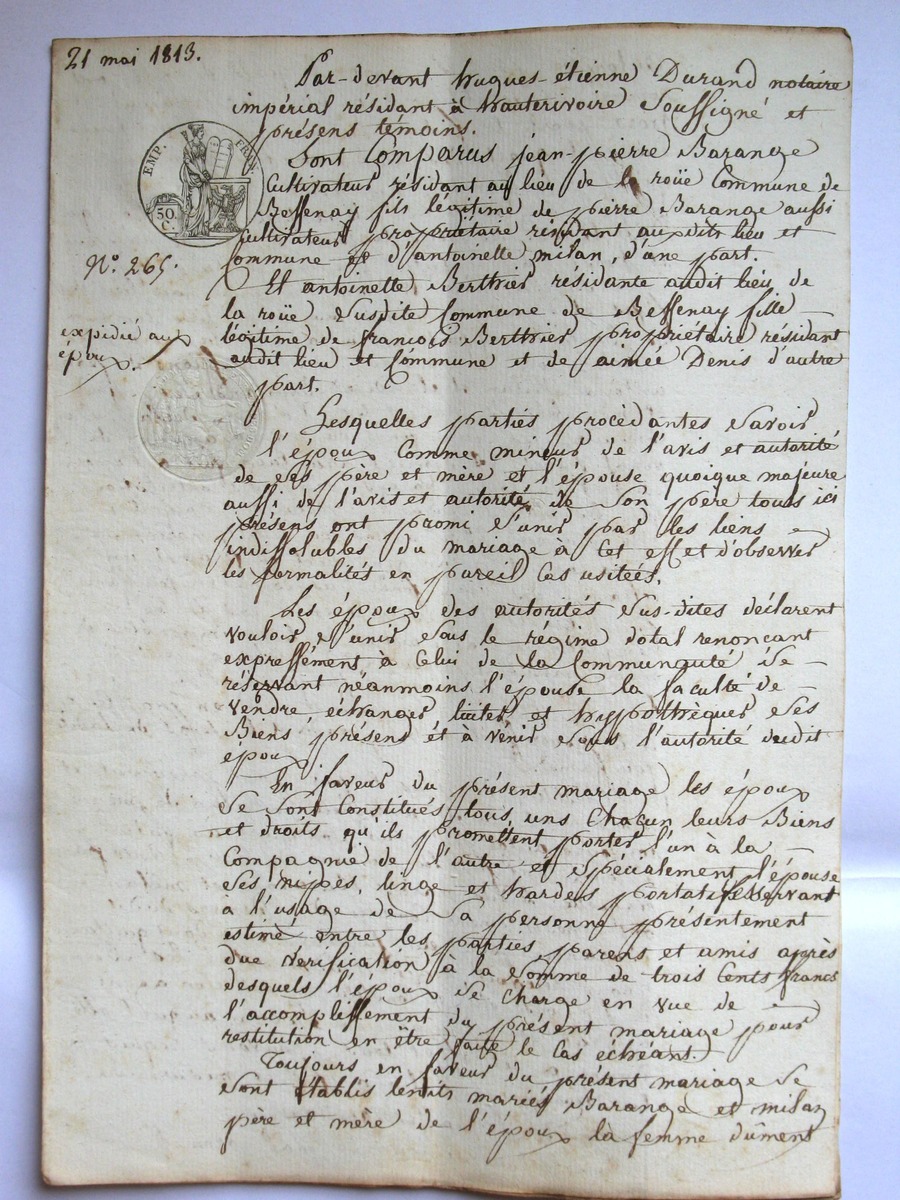 21 mai 1813.
Par-devant hugues-étienne Durand notaire
impérial résidant à hauterivoire Soussigné et
présens témoins.
EMP. FRAN.
50. C.
Sont Comparus jean-pierre Barange
Cultivateur résidant au lieu de la roüe Commune de
Bessenay fils légitime de pierre Barange aussi
Cultivateur propriétaire résidant auxdits lieu et
Commune et d'antoinette milan, d'une part.
N.º 265.
Et antoinette Berthier résidante audit lieu de
la roüe susdite Commune de Bessenay fille
légitime de françois Berthier propriétaire résidant
audit lieu et Commune et de aimée Denis d'autre
part.
expidié aux
époux.
Lesquelles parties procédantes Savoir
l'époux Comme mineur de l'avis et autorité
de ses père et mère et l'épouse quoique majeure
aussi de l'avis et autorité de Son père tous ici
présens ont promi s'unir par les liens
indissolubles du mariage à Cet effet d'observer
les formalités en pareil Cas usitées.
Les époux des autorités Sus-dites déclarent
vouloir s'unir Sous le régime dotal renonçant
expressément à Celui de la Communauté Se
réservant néanmoins l'épouse la faculté de
vendre, échanger et hyppothèquer Ses
Biens présens et à venir Sous l'autorité dudit
époux.
En faveur du présent mariage les époux
Se Sont Constitués tous uns Chacun leurs Biens
et droits qu'ils promettent porter l'un à la
Compagnie de l'autre et Spécialement l'épouse
Ses nipes, linge et hardes portatifs servant
à l'usage de Sa personne présentement
estimé entre les parties parens et amis après
due vérification à la Somme de trois Cents francs
desquels l'époux Se Charge en vue de
l'accomplissement du présent mariage pour
restitution en être faite le Cas échéant.
Toujours en faveur du présent mariage Se
Sont établis lesdits mariés Barange et milan
père et mère de l'époux la femme dûment